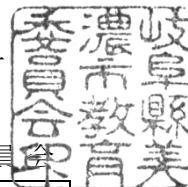 岐阜縣美
濃市教育
委員会印
員会